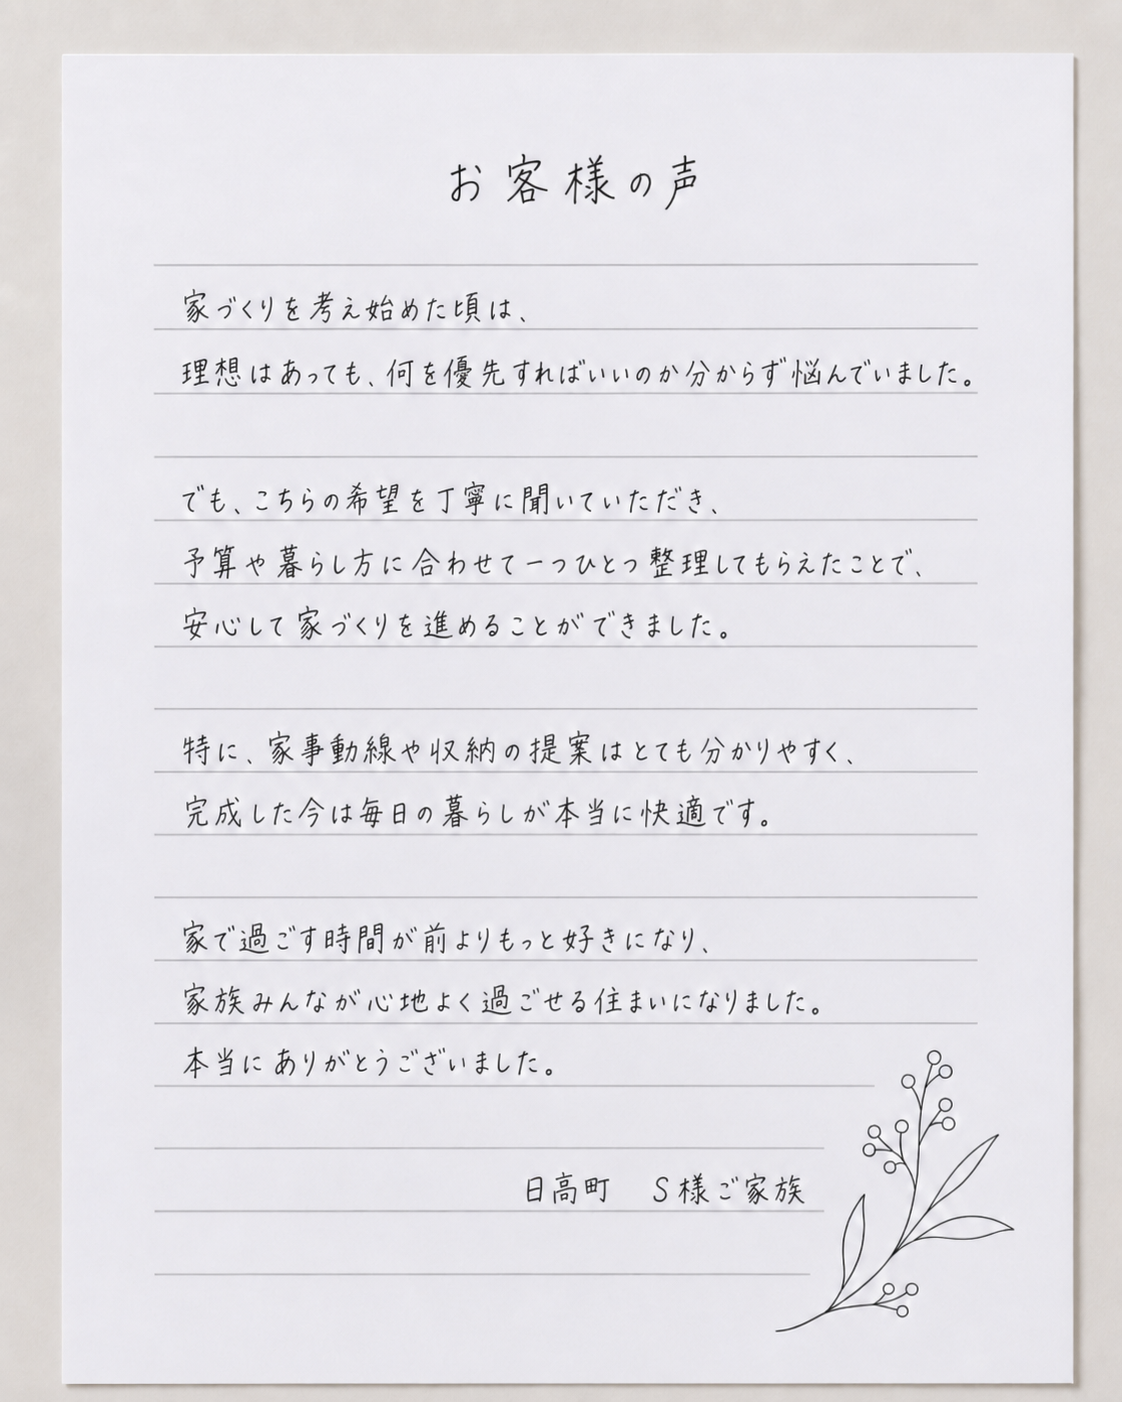 お客様の声
家づくりを考え始めた頃は、
理想はあっても、何を優先すればいいのか分からず悩んでいました。
でも、こちらの希望を丁寧に聞いていただき、
予算や暮らし方に合わせて一つひとつ整理してもらえたことで、
安心して家づくりを進めることができました。
特に、家事動線や収納の提案はとても分かりやすく、
完成した今は毎日の暮らしが本当に快適です。
家で過ごす時間が前よりもっと好きになり、
家族みんなが心地よく過ごせる住まいになりました。
本当にありがとうございました。
日高町　S様ご家族